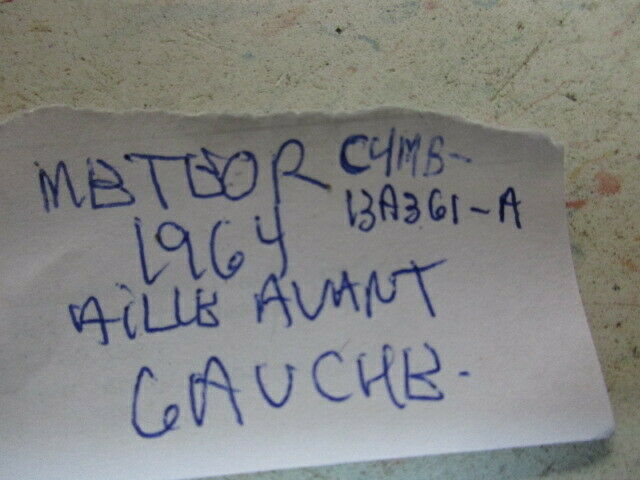 METEOR C4MB-
1964 13A361-A
AILLE AVANT
GAUCHE-